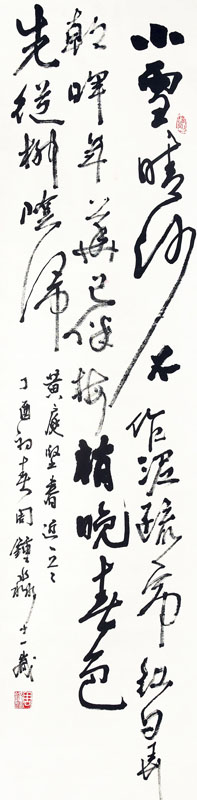 小雪晴沙不作泥疏帘红日弄
朝暉年華已伴梅梢晚春色
先從柳歸
黄庭堅春近之
丁酉初春周鍾淼十一歲